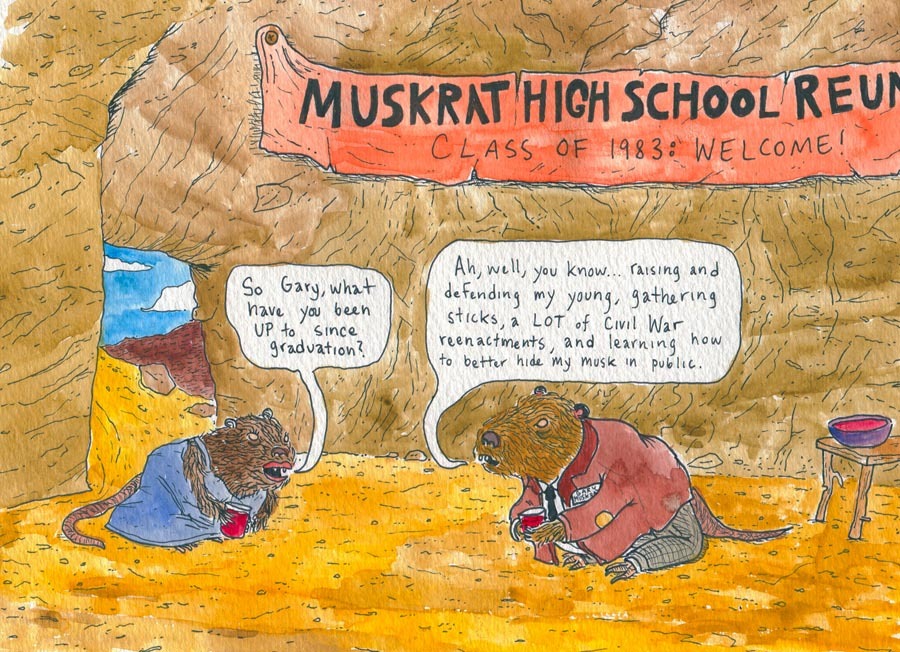 MUSKRAT HIGH SCHOOL REUN
CLASS OF 1983: WELCOME!
So Gary, what
have you been
UP to since
graduation?
Ah, well, you know... raising and
defending my young, gathering
sticks, a LOT of Civil War
reenactments, and learning how
to better hide my musk in public.